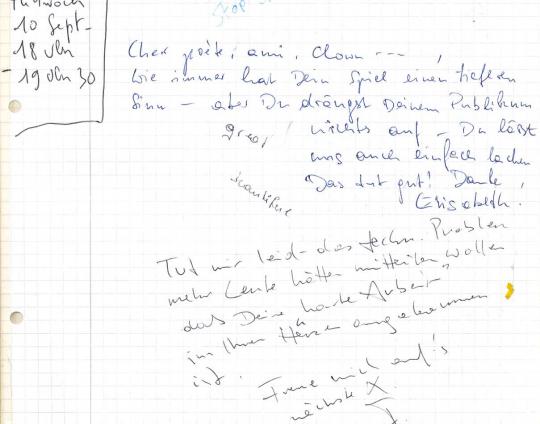 Mittwoch
10 Sept-
18 Uhr
- 19 Uhr 30
Cher poète, ami, Clown ---,
wie immer hat Dein Spiel einen tieferen
Sinn - aber Du drängst Deinem Publikum
nichts auf - Du läßt
uns auch einfach lachen
Das tut gut! Danke,
Elisabeth.
great
Tut mir leid - das techn. Problem
mehr Leute hätten mitteilen wollen
das Deine harte Arbeit
in Ihren Herzen angekommen
ist.
Freue mich auf's
nächste X.